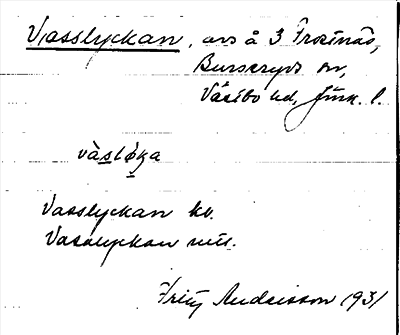 Vasslyckan, avs å 3 Frostnäs,
Burseryds sn,
Västbo hd, Jönk. l.
vàslø̀ka
Vasslyckan kv.
Vasslyckan mtl.
Fritz Andersson 1931